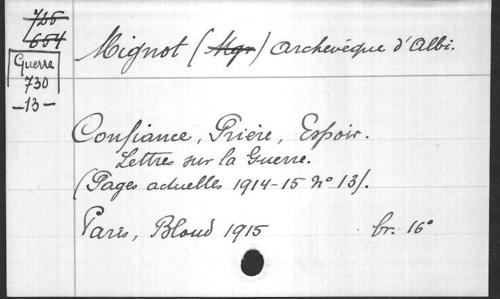 725
654
Guerre
730
-13-
Mignot (Mgr) Archevêque d'Albi.
Confiance, Prière, Espoir.
Lettres sur la Guerre.
(Pages actuelles 1914-15 N° 13).
Paris, Bloud 1915 br. 16°